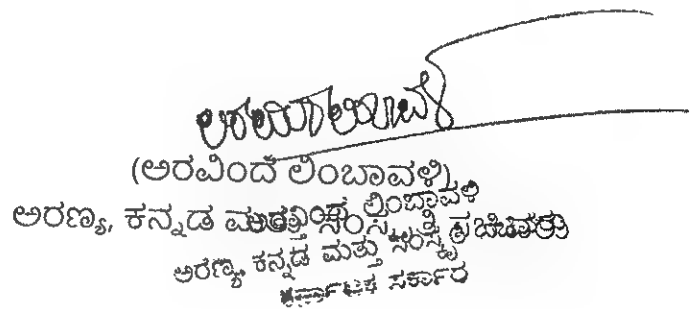 (ಅರವಿಂದ ಲಿಂಬಾವಳಿ)
ಲಿಂಬಾವಳಿ
ಅರಣ್ಯ, ಕನ್ನಡ ಮತ್ತು ಸಂಸ್ಕೃತಿ ಸಚಿವರು
ಅರಣ್ಯ, ಕನ್ನಡ ಮತ್ತು ಸಂಸ್ಕೃ
ಕರ್ನಾಟಕ ಸರ್ಕಾರ